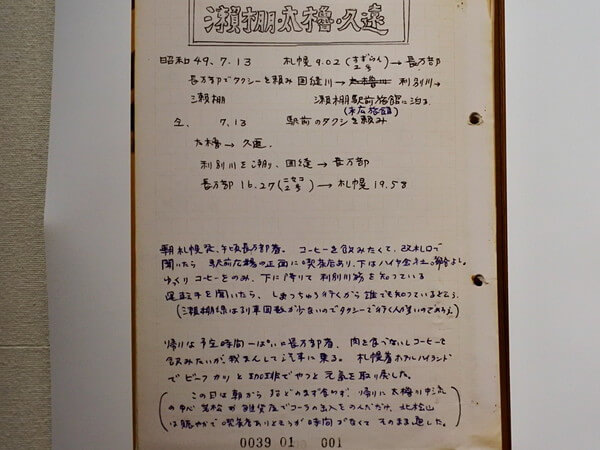 瀬棚・太櫓・久遠
昭和49.7.13 札幌9.02(すずらん2号)→長万部
長万部でタクシーを頼み 国縫川→太櫓川 利別川→
瀬棚 瀬棚駅前旅館に泊る
(末広旅館)
仝. 7.13 駅前のタクシを頼み
太櫓→久遠.
利別川を 、国縫→長万部
長万部16.27(ニセコ2号)→札幌19.58
朝札幌発、 長万部着。コーヒーを飲みたくて、改札口で
聞いたら 駅前広場の正面に喫茶店あり、下はハイヤ会社。 よし。
ゆっくりコーヒーをのみ、下に降りて 利別川筋を知っている
運転手を聞いたら、しょっちゅう行くから誰でも知っているという。
(瀬棚線は列車回数が少ないのでタクシーで行く人が のであろう。)
帰りは予定時間一ぱいに長万部着、肉を食べないしコーヒーも
飲みたいが、我まんして汽車に乗る。札幌着ホテルハイランド
でビーフカツと珈琲でやっと元気を取り戻した。
この日は朝から 帰りに太櫓川中流
の中心 が雑貨店でコーラの 入をのんだだけ、北桧山
は賑やかで喫茶店ありそうだが時間がなくて そのまま通した。
0039 01 001